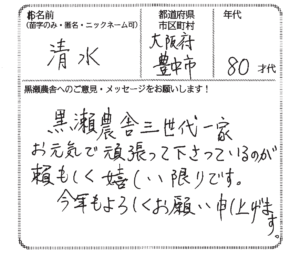 お名前
(苗字のみ・匿名・ニックネーム可)
清水
都道府県
市区町村
大阪府
豊中市
年代
80才代
黒瀬農舎へのご意見・メッセージをお願いします!
黒瀬農舎三世代一家
お元気で頑張って下さっているのが
頼もしく嬉しい限りです。
今年もよろしくお願い申し上げます。